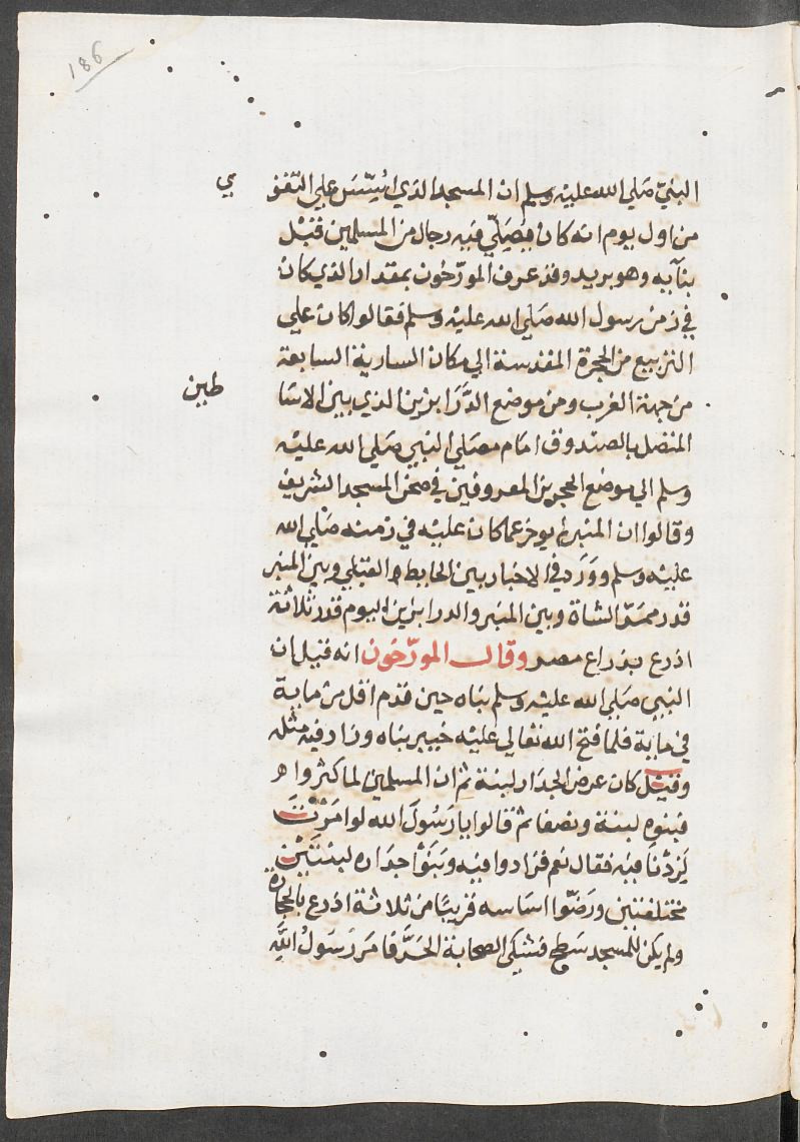 186
النبيّ صَلي الله عليْه وسلم ان المسجد الذي اُسِّسَ علي التقو ي
من اول يوم انه كان يُصَلّي فيه رجال من المسلمين قبْل
بنآيه وهو يريد وقد عرف المورّخون بمقدار الذي كان
في زمن رسول الله صَلي الله عليْه وسلم فقالوا كان علي
التربيع من الحجرة المقدسة الي مكان السارية السابعة
من جهة الغرب ومن موضع الدَّرَابزين الذي بين الاسا طين
المتصل بالصندوق امام مصَلي النبي صَلي الله عليْه
وسلم الي موضع الحجرين المعروفين في صَحْن المسجد الشريف
وقالوا ان المنبر لم يوخر عما كان عليْه في زمنه صَلي الله
عليْه وسلم ووَرَد في الاخبار بين الحايط القبلي وبين المنبر
قدر ممَرّ الشاة وبين المنبر والدرابزين اليوم قدر ثلاثة
اذرع بذراع مصر وقال المورّخون انه قيل ان
النبي صَلي الله عليْه وسلم بناه حين قدم اقل من ماية
في ماية فلما فتح الله تعالي عليْه خيبر بناه وزاد فيه مثله
وقيْل كان عرض الجدَار لبنة ثم ان المسلمين لما كثروا
فبنوه لبنة ونصفا ثم قالوا يا رَسُولَ الله لو امَرْتَ
لَزِدْنَا فيْه فقال نعم فزادوا فيه وبَنَوْا جدَاره لبنتَيْن
مختلفتين ورَضّوا اسَاسه قريبًا من ثلاثة اذرع بالحجارة
ولم يكن للمسجد سَطح فشكي الصحابة الحَرَّ فامَر رَسُولُ اللهِ